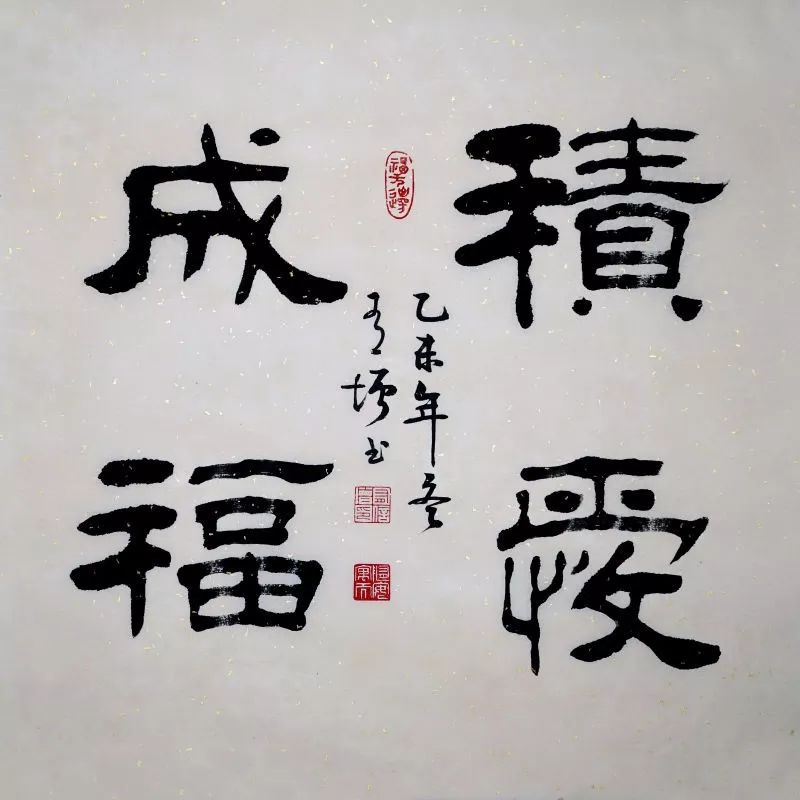 積愛
成福
乙未年冬
书